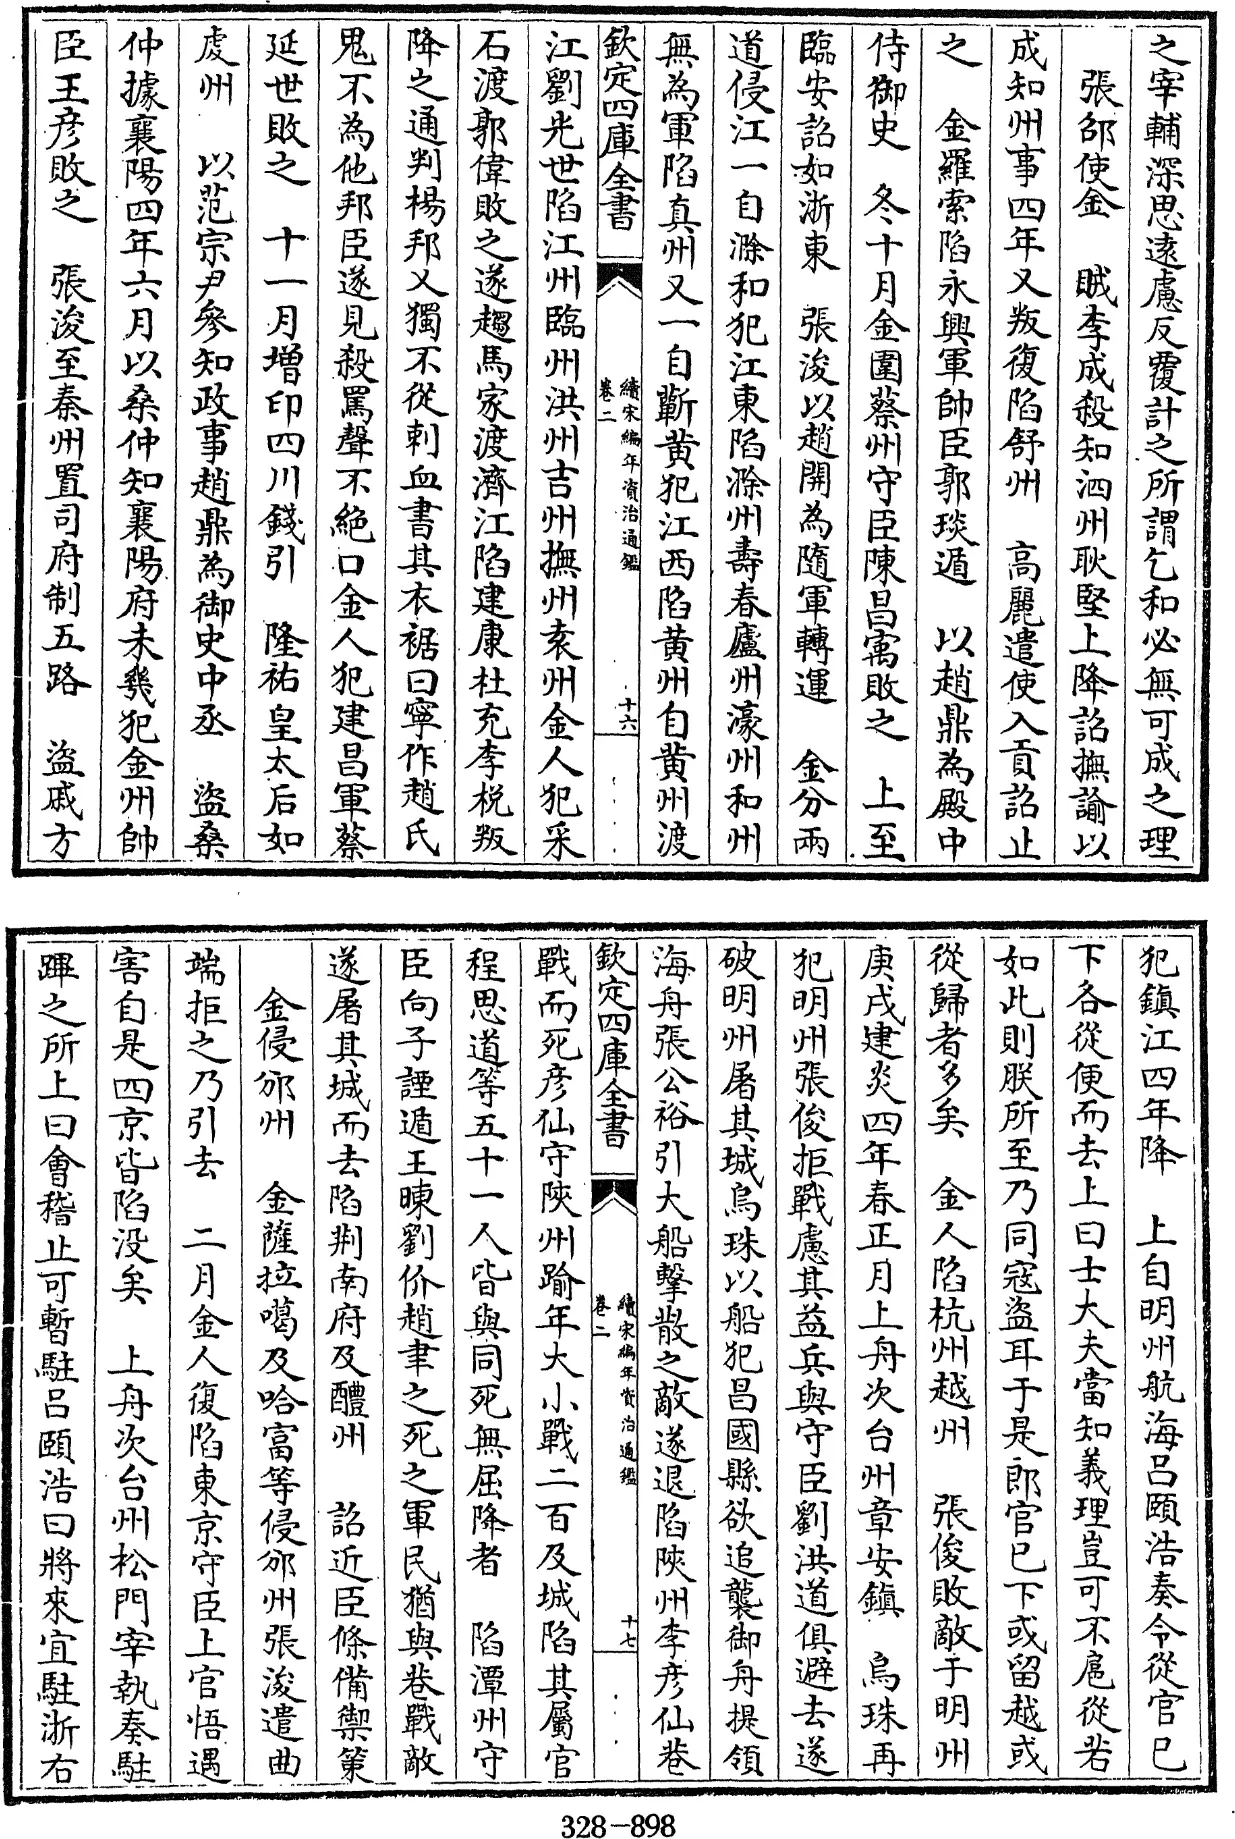 之宰輔深思遠慮反覆計之所謂乞和必無可成之理
張邵使金　賊李成殺知泗州耿堅上降詔撫諭以
成知州事四年又叛復陷舒州　高麗遣使入貢詔止
之　金羅索陷永興軍帥臣郭琰遁　以趙鼎為殿中
侍御史　冬十月金圍蔡州守臣陳昌寓敗之　上至
臨安詔如浙東　張浚以趙開為隨軍轉運　金分兩
道侵江一自滁和犯江東陷滁州壽春廬州濠州和州
無為軍陷真州又一自蘄黄犯江西陷黄州自黄州渡
欽定四庫全書
續宋編年資治通鑑
卷二
十六
江劉光世陷江州臨州洪州吉州撫州袁州金人犯采
石渡郭偉敗之遂趨馬家渡濟江陷建康杜充李梲叛
降之通判楊邦乂獨不從刺血書其衣裾曰寧作趙氏
鬼不為他邦臣遂見殺罵聲不絶口金人犯建昌軍蔡
延世敗之　十一月增印四川錢引　隆祐皇太后如
虔州　以范宗尹參知政事趙鼎為御史中丞　盜桑
仲據襄陽四年六月以桑仲知襄陽府未幾犯金州帥
臣王彦敗之　張浚至秦州置司府制五路　盜戚方
犯鎮江四年降　上自明州航海吕頤浩奏令從官已
下各從便而去上曰士大夫當知義理豈可不扈從若
如此則朕所至乃同寇盜耳于是郎官已下或留越或
從歸者多矣　金人陷杭州越州　張俊敗敵于明州
庚戌建炎四年春正月上舟次台州章安鎮　烏珠再
犯明州張俊拒戰慮其益兵與守臣劉洪道俱避去遂
破明州屠其城烏珠以船犯昌國縣欲追襲御舟提領
海舟張公裕引大船擊散之敵遂退陷陜州李彦仙巷
欽定四庫全書
續宋編年資治通鑑
卷二
十七
戰而死彦仙守陜州踰年大小戰二百及城陷其屬官
程思道等五十一人皆與同死無屈降者　陷潭州守
臣向子諲遁王暕劉价趙聿之死之軍民猶與巷戰敵
遂屠其城而去陷荆南府及醴州　詔近臣條備禦策
金侵邠州　金薩拉噶及哈富等侵邠州張浚遣曲
端拒之乃引去　二月金人復陷東京守臣上官悟遇
害自是四京皆陷没矣　上舟次台州松門宰執奏駐
蹕之所上曰會稽止可暫駐吕頤浩曰將來宜駐浙右
328-898